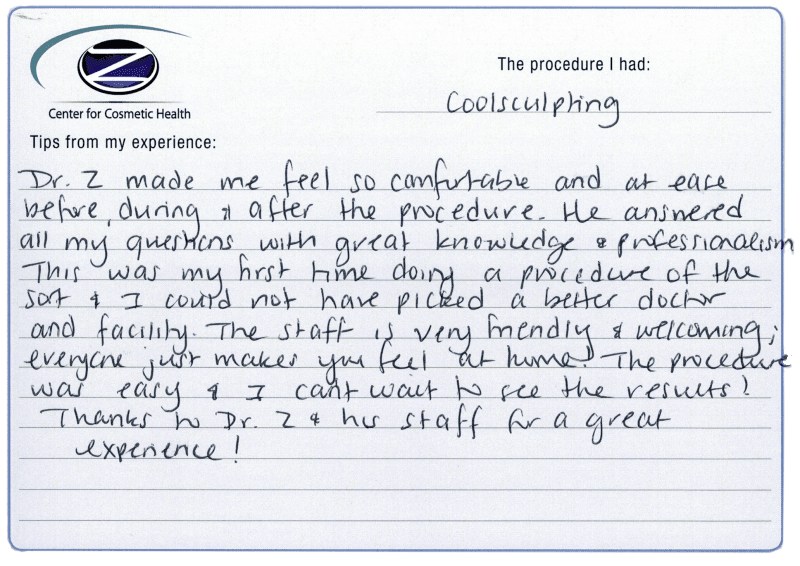 Z
Center for Cosmetic Health
The procedure I had:
Coolsculpting
Tips from my experience:
Dr. Z made me feel so comfortable and at ease
before, during & after the procedure. He answered
all my questions with great knowledge & professionalism
This was my first time doing a procedure of the
sort & I could not have picked a better doctor
and facility. The staff is very friendly & welcoming;
everyone just makes you feel at home! The procedure
was easy & I can't wait to see the results!
Thanks to Dr. Z & his staff for a great
experience!